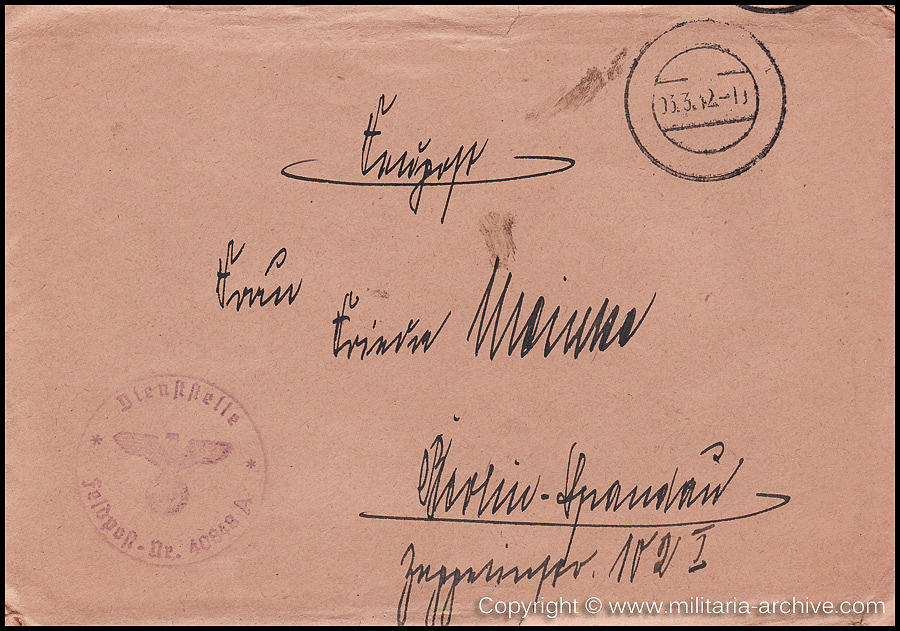 03.3.42.-1
Feldpost
Frau
Frieda Meinke
Dienststelle
Feldpost-Nr. 40848 A
Berlin-Spandau
Zeppelinstr. 102 I
Copyright © www.militaria-archive.com